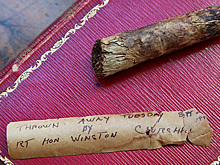 THROWN AWAY TUESDAY
BY
RT HON. WINSTON CHURCHILL